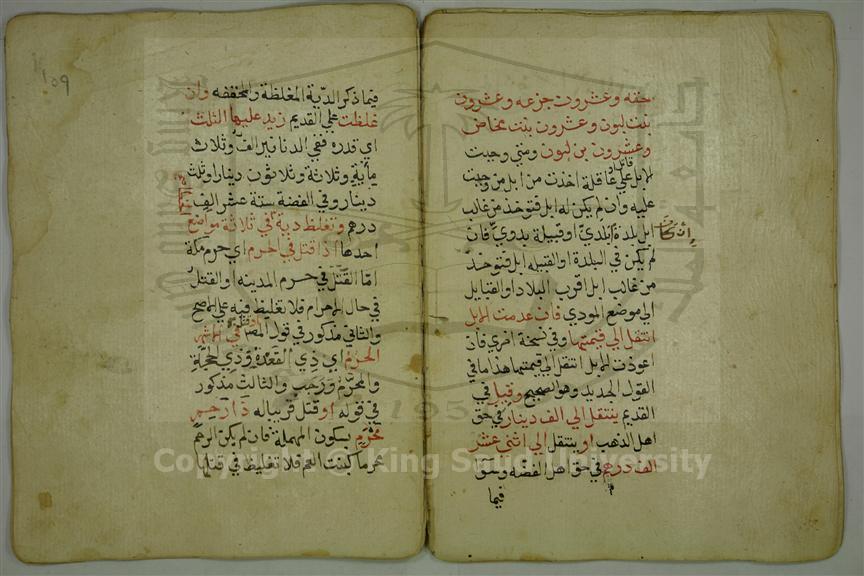 حقه وعشرون جزعه وعشرون
بنت لبون وعشرون بنت مخاض
وعشرون بن لبون ومتي وجبت
قاتل
الابل علي عاقلة اخذت من ابل من وجبت
عليه وان لم يكن له ابل فتوخذ من غالب
ابل بلدة بلدي او قبيلة بدوي فان
لم يكن في البلدة او القبيله ابل فتوخذ
من غالب ابل اقرب البلاد او القبايل
الي موضع المودي فان عدمت الابل
انتقل الي قيمتها وفي نسخة اخري فان
اعوذت الابل انتقل لي قيمتها هذا ما في
القول الجديد وهو الصحيح وقيل في
القديم ينتقل الي الف دينار في حق
اهل الذهب او ينتقل الي اثني عشر
الف درهم في حق اهل الفضه وسوّ
فيما
١٥٩
فيما ذكر الدية المغلظة والمخففه وان
غلظت علي القديم زيد عليها الثلث
اي قدره ففي الدنانير الف وثلاث
مأية وثلاثة وثلاثون دينارا وثلث
دينار وفي الفضة ستة عشر الف
درهم وتغلظ دية في ثلاثة مواضع
احدها اذا قتل في الحرم اي حرم مكة
امّا القتل في حرم المدينه او القتل
في حال الاحرام فلا تغليظ فيه علي الاصح
والثاني مذكور في قول المص في الاشهر
الحرم اي ذي القعدة وذي الحجة
والمحرم ورجب والثالث مذكور
في قوله او قتل قريبا له ذا رحم
محرم بسكون المهملة فان لم يكن الرحم
محرما كبنت العم فلا تغليظ في قتلها
Copyright © King Saud University
195